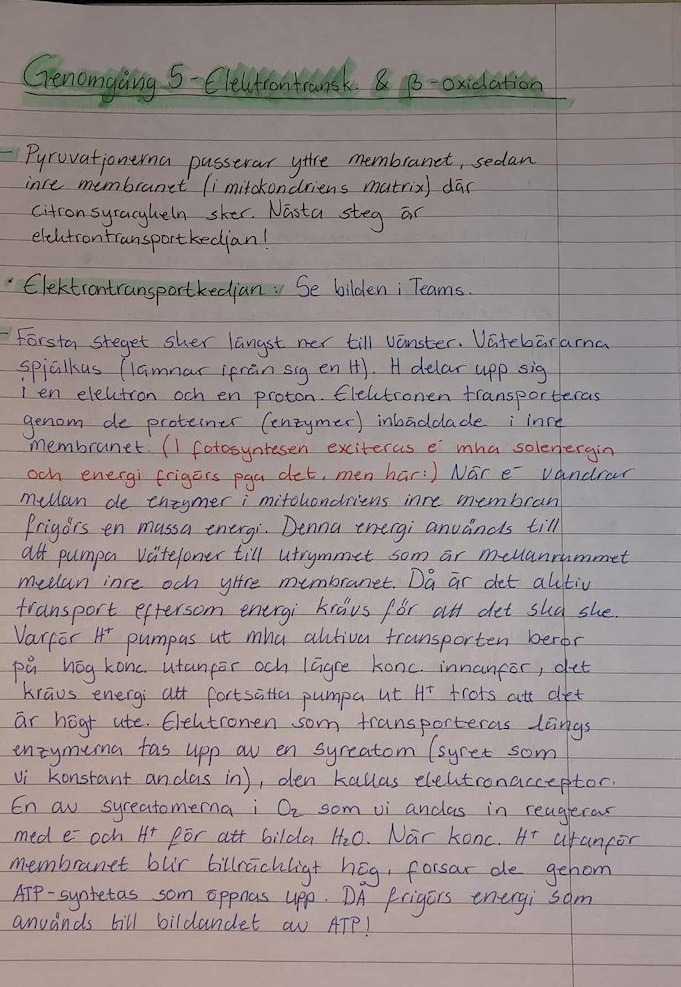 Genomgång 5 - Elektrontransk. & β-oxidation
- Pyruvatjonerna passerar yttre membranet, sedan
inre membranet (i mitokondriens matrix) där
citronsyracykeln sker. Nästa steg är
elektrontransportkedjan!
• Elektrontransportkedjan: Se bilden i Teams.
- Första steget sker längst ner till vänster. Vätebärarna
spjälkas (lämnar ifrån sig en H). H delar upp sig
i en elektron och en proton. Elektronen transporteras
genom de proteiner (enzymer) inbäddade i inre
membranet. (I fotosyntesen exciteras e⁻ mha solenergin
och energi frigörs pga det, men här:) När e⁻ vandrar
mellan de enzymer i mitokondriens inre membran
frigörs en massa energi. Denna energi används till
att pumpa vätejoner till utrymmet som är mellanrummet
mellan inre och yttre membranet. Då är det aktiv
transport eftersom energi krävs för att det ska ske.
Varför H⁺ pumpas ut mha aktiva transporten beror
på hög konc. utanför och lägre konc. innanför, det
krävs energi att fortsätta pumpa ut H⁺ trots att det
är högt ute. Elektronen som transporteras längs
enzymerna tas upp av en syreatom (syret som
vi konstant andas in), den kallas elektronacceptor.
En av syreatomerna i O₂ som vi andas in reagerar
med e⁻ och H⁺ för att bilda H₂O. När konc. H⁺ utanför
membranet blir tillräckligt hög, forsar de genom
ATP-syntetas som öppnas upp. DÅ frigörs energi som
används till bildandet av ATP!